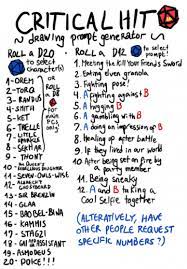 CRITICAL HIT
drawing prompt generator
ROLL A D20
to select
character(s)
OR
ROLL
A D8
FOR
MAIN
PCS
ONLY
1-OREM
2-TORQ
3-RANDUS
4-SMITH
5-KET
6-THELLE
7-LITTLE
SPARKLES
8-SEKHAR
9-THONY
10-THE QUEEN'S
11-SERVO-OWLS-WISE
12-ALBRECHT'S
GHOSTBEARD
13-SIR BROSLIN
14-GLAA
15-BAD BEL-BIWA
16-KAMHIS
17-SITAGI
18-GUI THE ASSISTANT
19-ASMODEUS
20-DOICE!!!
ROLL A D12
to select
prompt!
1. Meeting the Kill Your Friends Sword
2. Eating elven granola
3. Fighting pose!
4. A fighting against B
5. A hugging B
6. A gambling with B
7. A doing an impression of B
8. Healing up after battle
9. If they lived in our world
10. After being set on fire by
a party member
11. Being sneaky
12. A and B taking a
Cool Selfie together
(ALTERNATIVELY, HAVE
OTHER PEOPLE REQUEST
SPECIFIC NUMBERS?)